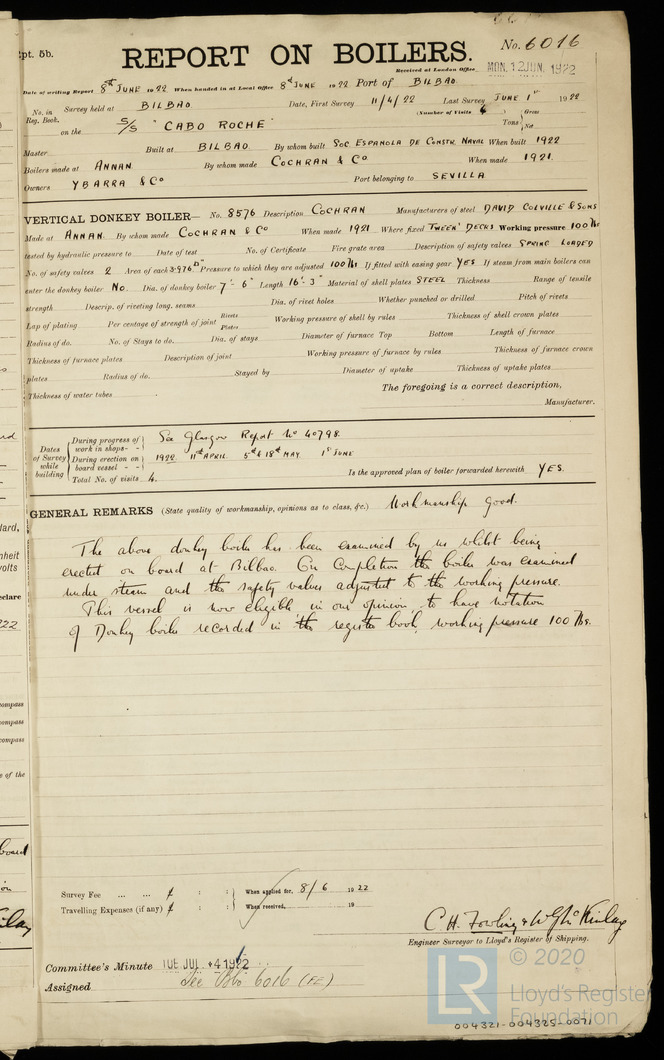 Rpt. 5b.
REPORT ON BOILERS.
No. 6016
Received at London Office MON. 12 JUN. 1922
Date of writing Report 8th JUNE 1922 When handed in at Local Office 8th JUNE 1922 Port of BILBAO.
No. in Survey held at BILBAO. Date, First Survey 11/4/22 Last Survey JUNE 1st 1922
Reg. Book. (Number of Visits 4 ) Gross
on the S/S "CABO ROCHE" Tons Net
Master Built at BILBAO By whom built SOC ESPANOLA DE CONSTR. NAVAL When built 1922
Boilers made at ANNAN. By whom made COCHRAN & Co When made 1921.
Owners YBARRA & Co Port belonging to SEVILLA
VERTICAL DONKEY BOILER— No. 8576 Description COCHRAN Manufacturers of steel DAVID COLVILLE & SONS
Made at ANNAN. By whom made COCHRAN & Co When made 1921 Where fixed TWEEN DECKS Working pressure 100 lbs
tested by hydraulic pressure to Date of test No. of Certificate Fire grate area Description of safety valves SPRING LOADED
No. of safety valves 2 Area of each 3.976 □" Pressure to which they are adjusted 100 lbs If fitted with easing gear YES If steam from main boilers can
enter the donkey boiler No. Dia. of donkey boiler 7'- 6" Length 16'- 3" Material of shell plates STEEL Thickness Range of tensile
strength Descrip. of riveting long. seams Dia. of rivet holes Whether punched or drilled Pitch of rivets
Lap of plating Per centage of strength of joint Rivets Plates Working pressure of shell by rules Thickness of shell crown plates
Radius of do. No. of Stays to do. Dia. of stays Diameter of furnace Top Bottom Length of furnace
Thickness of furnace plates Description of joint Working pressure of furnace by rules Thickness of furnace crown
plates Radius of do. Stayed by Diameter of uptake Thickness of uptake plates
Thickness of water tubes The foregoing is a correct description,
Manufacturer.
Dates of Survey while building
During progress of work in shops - - See Glasgow Report No 40798.
During erection on board vessel - - 1922. 11th APRIL 5th & 18th MAY 1st JUNE
Total No. of visits 4. Is the approved plan of boiler forwarded herewith YES.
GENERAL REMARKS (State quality of workmanship, opinions as to class, &c.) Workmanship good.
The above donkey boiler has been examined by us whilst being
erected on board at Bilbao. On completion the boiler was examined
under steam and the safety valves adjusted to the working pressure.
This vessel is now eligible, in our opinion, to have notation
of Donkey boiler recorded in the register book, working pressure 100 lbs.
Survey Fee ... ... £ : : When applied for, 8/6 1922
Travelling Expenses (if any) £ : : When received, 19
C.H. Fowling & W.G. McKinlay
Engineer Surveyor to Lloyd's Register of Shipping.
Committee's Minute TUE JUL 4 1922
Assigned See 6016 (FE)
© 2020
LR
Lloyd's Register
Foundation
004321-004325-0071